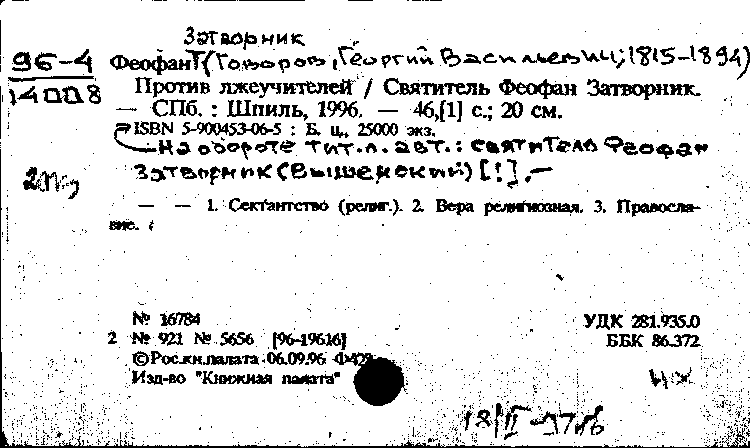 Затворник
96-4
14008
Феофан (Говоров, Георгий Васильевич; 1815-1894)
Против лжеучителей / Святитель Феофан Затворник.
— СПб. : Шпиль, 1996. — 46,[1] с.; 20 см.
ISBN 5-900453-06-5 : Б. ц., 25000 экз.
—На обороте тит.л. авт.: святитель Феофан
Затворник (Вышенский) [!]. —
— — 1. Сектантство (религ.). 2. Вера религиозная. 3. Правосла-
вие.
№ 16784
УДК 281.935.0
2 № 921 № 5656 [96-19616]
ББК 86.372
©Рос.кн.палата 06.09.96 Ф429
Изд-во "Книжная палата"
18/II-97